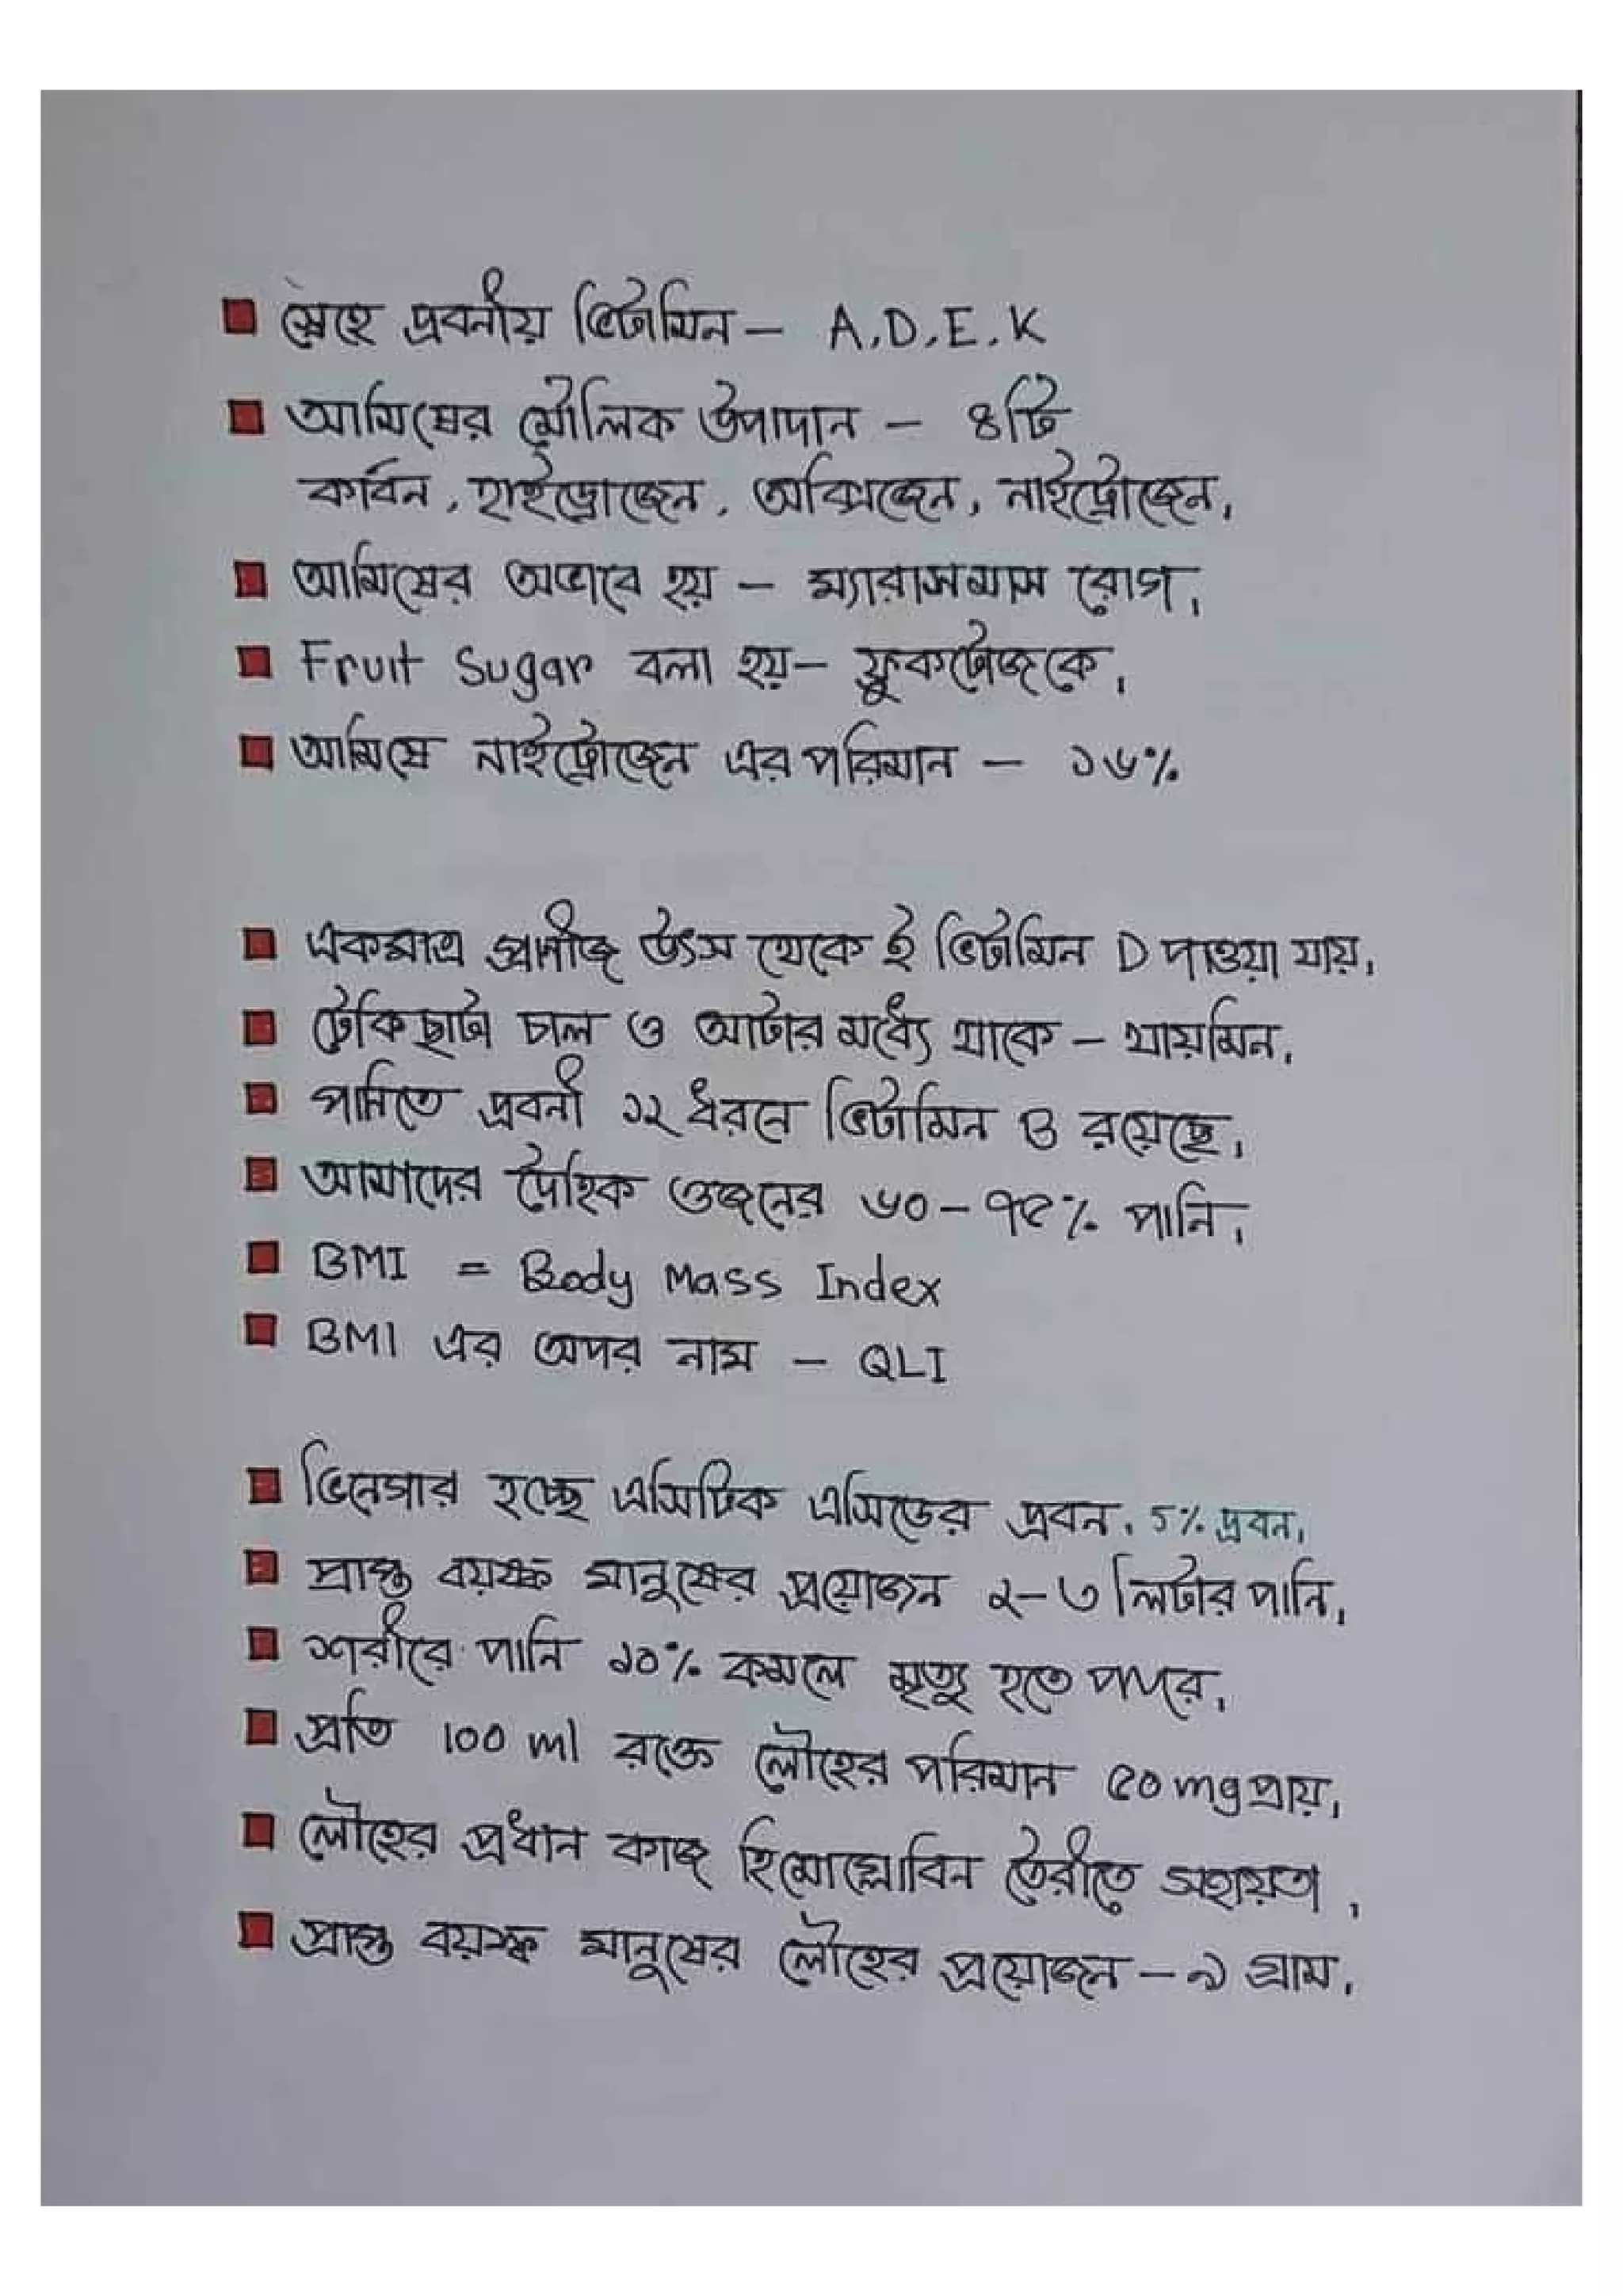 স্নেহে দ্রবনীয় ভিটামিন – A, D, E, K
আমিষের মৌলিক উপাদান – ৪টি
কার্বন, হাইড্রোজেন, অক্সিজেন, নাইট্রোজেন।
আমিষের অভাবে হয় – ম্যারাসমাস রোগ।
Fruit Sugar বলা হয় – ফ্রুকটোজকে।
আমিষে নাইট্রোজেন এর পরিমান – ১৬%
একমাত্র প্রানীজ উৎস থেকে ই ভিটামিন D পাওয়া যায়।
ঢেঁকিছাটা চাল ও আটার মধ্যে থাকে – থায়ামিন।
পানিতে দ্রবনী ১২ ধরনে ভিটামিন B রয়েছে।
আমাদের দৈহিক ওজনের ৬০-৭৫% পানি।
BMI = Body Mass Index
BMI এর অপর নাম – QLI
ভিনেগার হচ্ছে এসিটিক এসিডের দ্রবন। 5% দ্রবন।
প্রাপ্ত বয়স্ক মানুষের প্রয়োজন ২-৩ লিটার পানি।
শরীরে পানি ১০% কমলে মৃত্যু হতে পারে।
প্রতি 100 ml রক্তে লৌহের পরিমান ৫০ mg প্রায়।
লৌহের প্রধান কাজ হিমোগ্লোবিন তৈরীতে সহায়তা।
প্রাপ্ত বয়স্ক মানুষের লৌহের প্রয়োজন – ৯ গ্রাম।